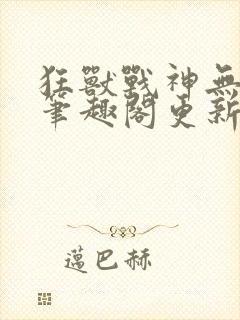 狂獸戰神無
筆趣閣更新
邁巴赫